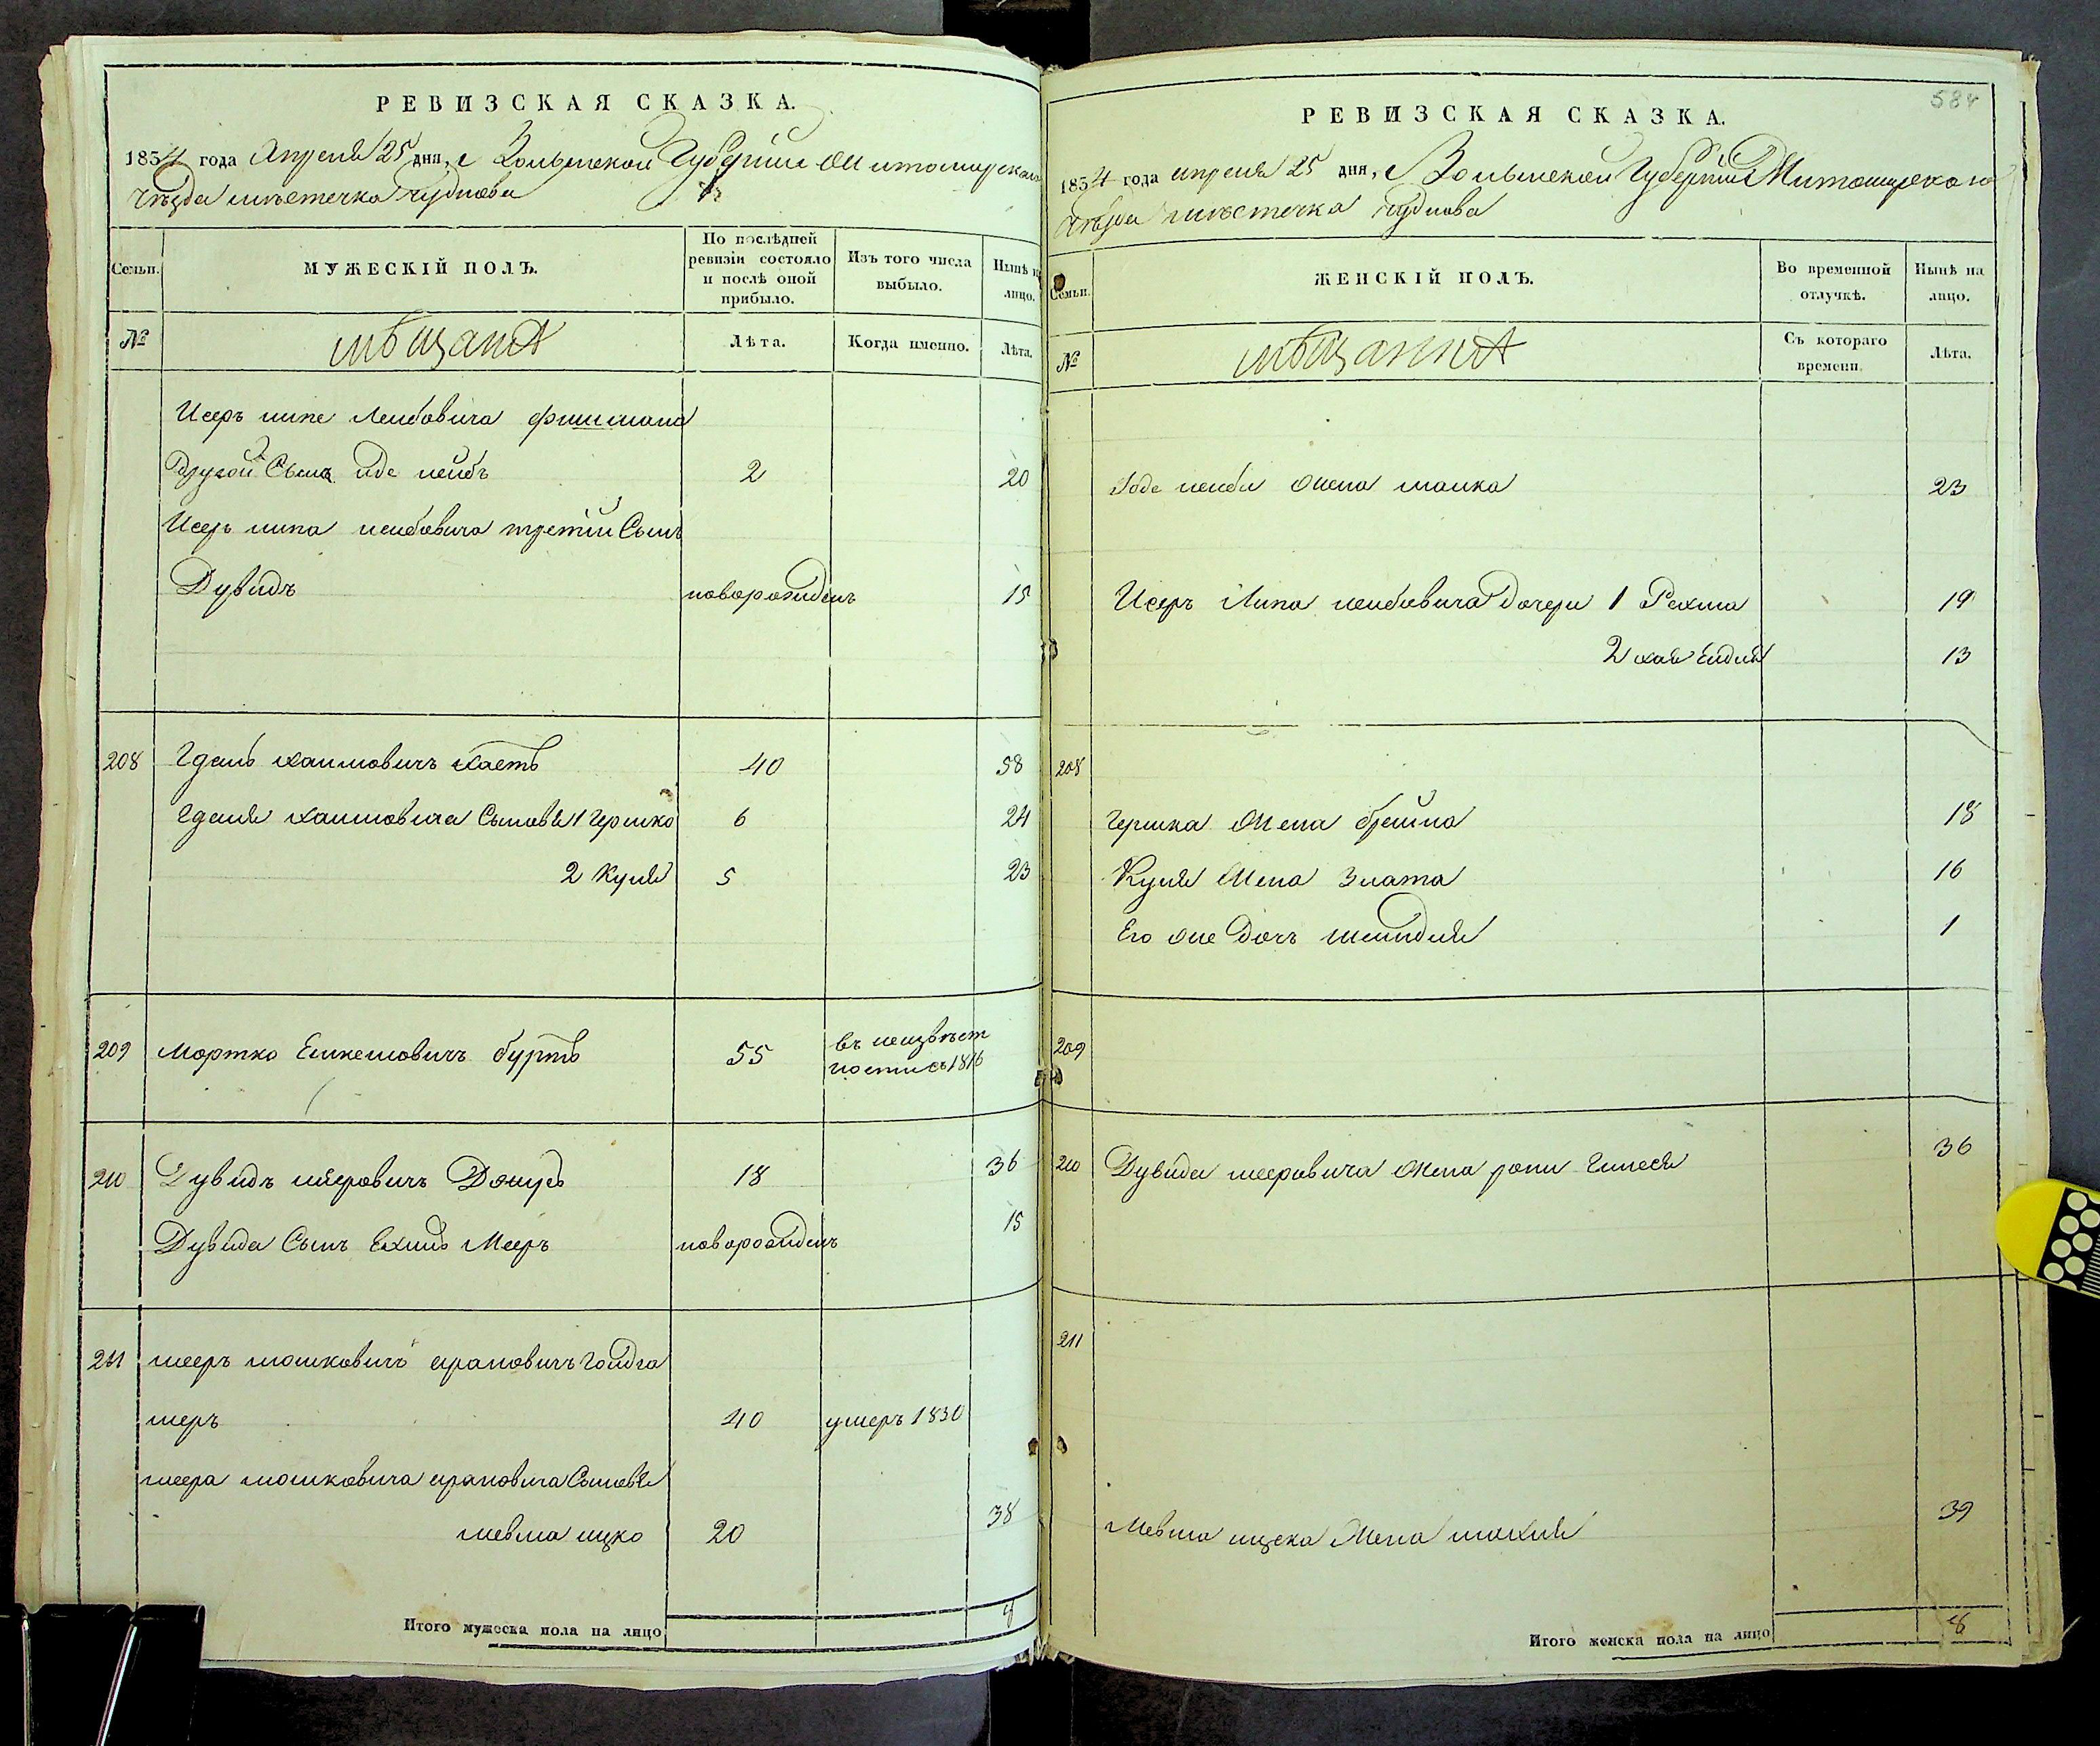 РЕВИЗСКАЯ СКАЗКА.
1854 года Апреля 25 дня, Волынской Губернии Житомирскаго
уѣзда мѣстечка Чуднова
Семьи.
МУЖЕСКІЙ ПОЛЪ.
По послѣдней ревизіи состояло и послѣ оной прибыло.
Изъ того числа выбыло.
Нынѣ на лицо.
№
мѣщане
Лѣта.
Когда именно.
Лѣта.
Исеръ Лейбовича
другой Сынъ Иде лейбъ 2 20
Исеръ липа лейбовича третій Сынъ
Дувидъ новорожденъ 15
208 хаимовичъ 40 58
хаимовича Сыновья 1 Гершко 6 24
2 Куня 5 23
209 Мортко 55 въ неизвѣст
ности съ 1816
210 Дувидъ меровичъ 18 36
Дувида Сынъ Ехиль Мееръ новорожденъ 15
211 мееръ мошковичъ
меръ 40 умеръ 1850
меера мошковича Сыновья
шевма ицко 20 38
Итого мужеска пола на лицо 8
584
РЕВИЗСКАЯ СКАЗКА.
1854 года апреля 25 дня, Волынской Губерніи Житомирскаго
уѣзда мѣстечка Чуднова
Семьи.
ЖЕНСКІЙ ПОЛЪ.
Во временной отлучкѣ.
Нынѣ на лицо.
№
мѣщанке
Съ котораго времени.
Лѣта.
лейби жена малка 23
Исеръ Липа лейбовича дочери 1 Рехма 19
2 хая Ендля 13
208
Гершка жена брейна 18
Куня жена Злата 16
Его же дочь шейндля 1
209
210 Дувида мееровича жена 36
211
ицека жена 39
Итого женска пола на лицо 8